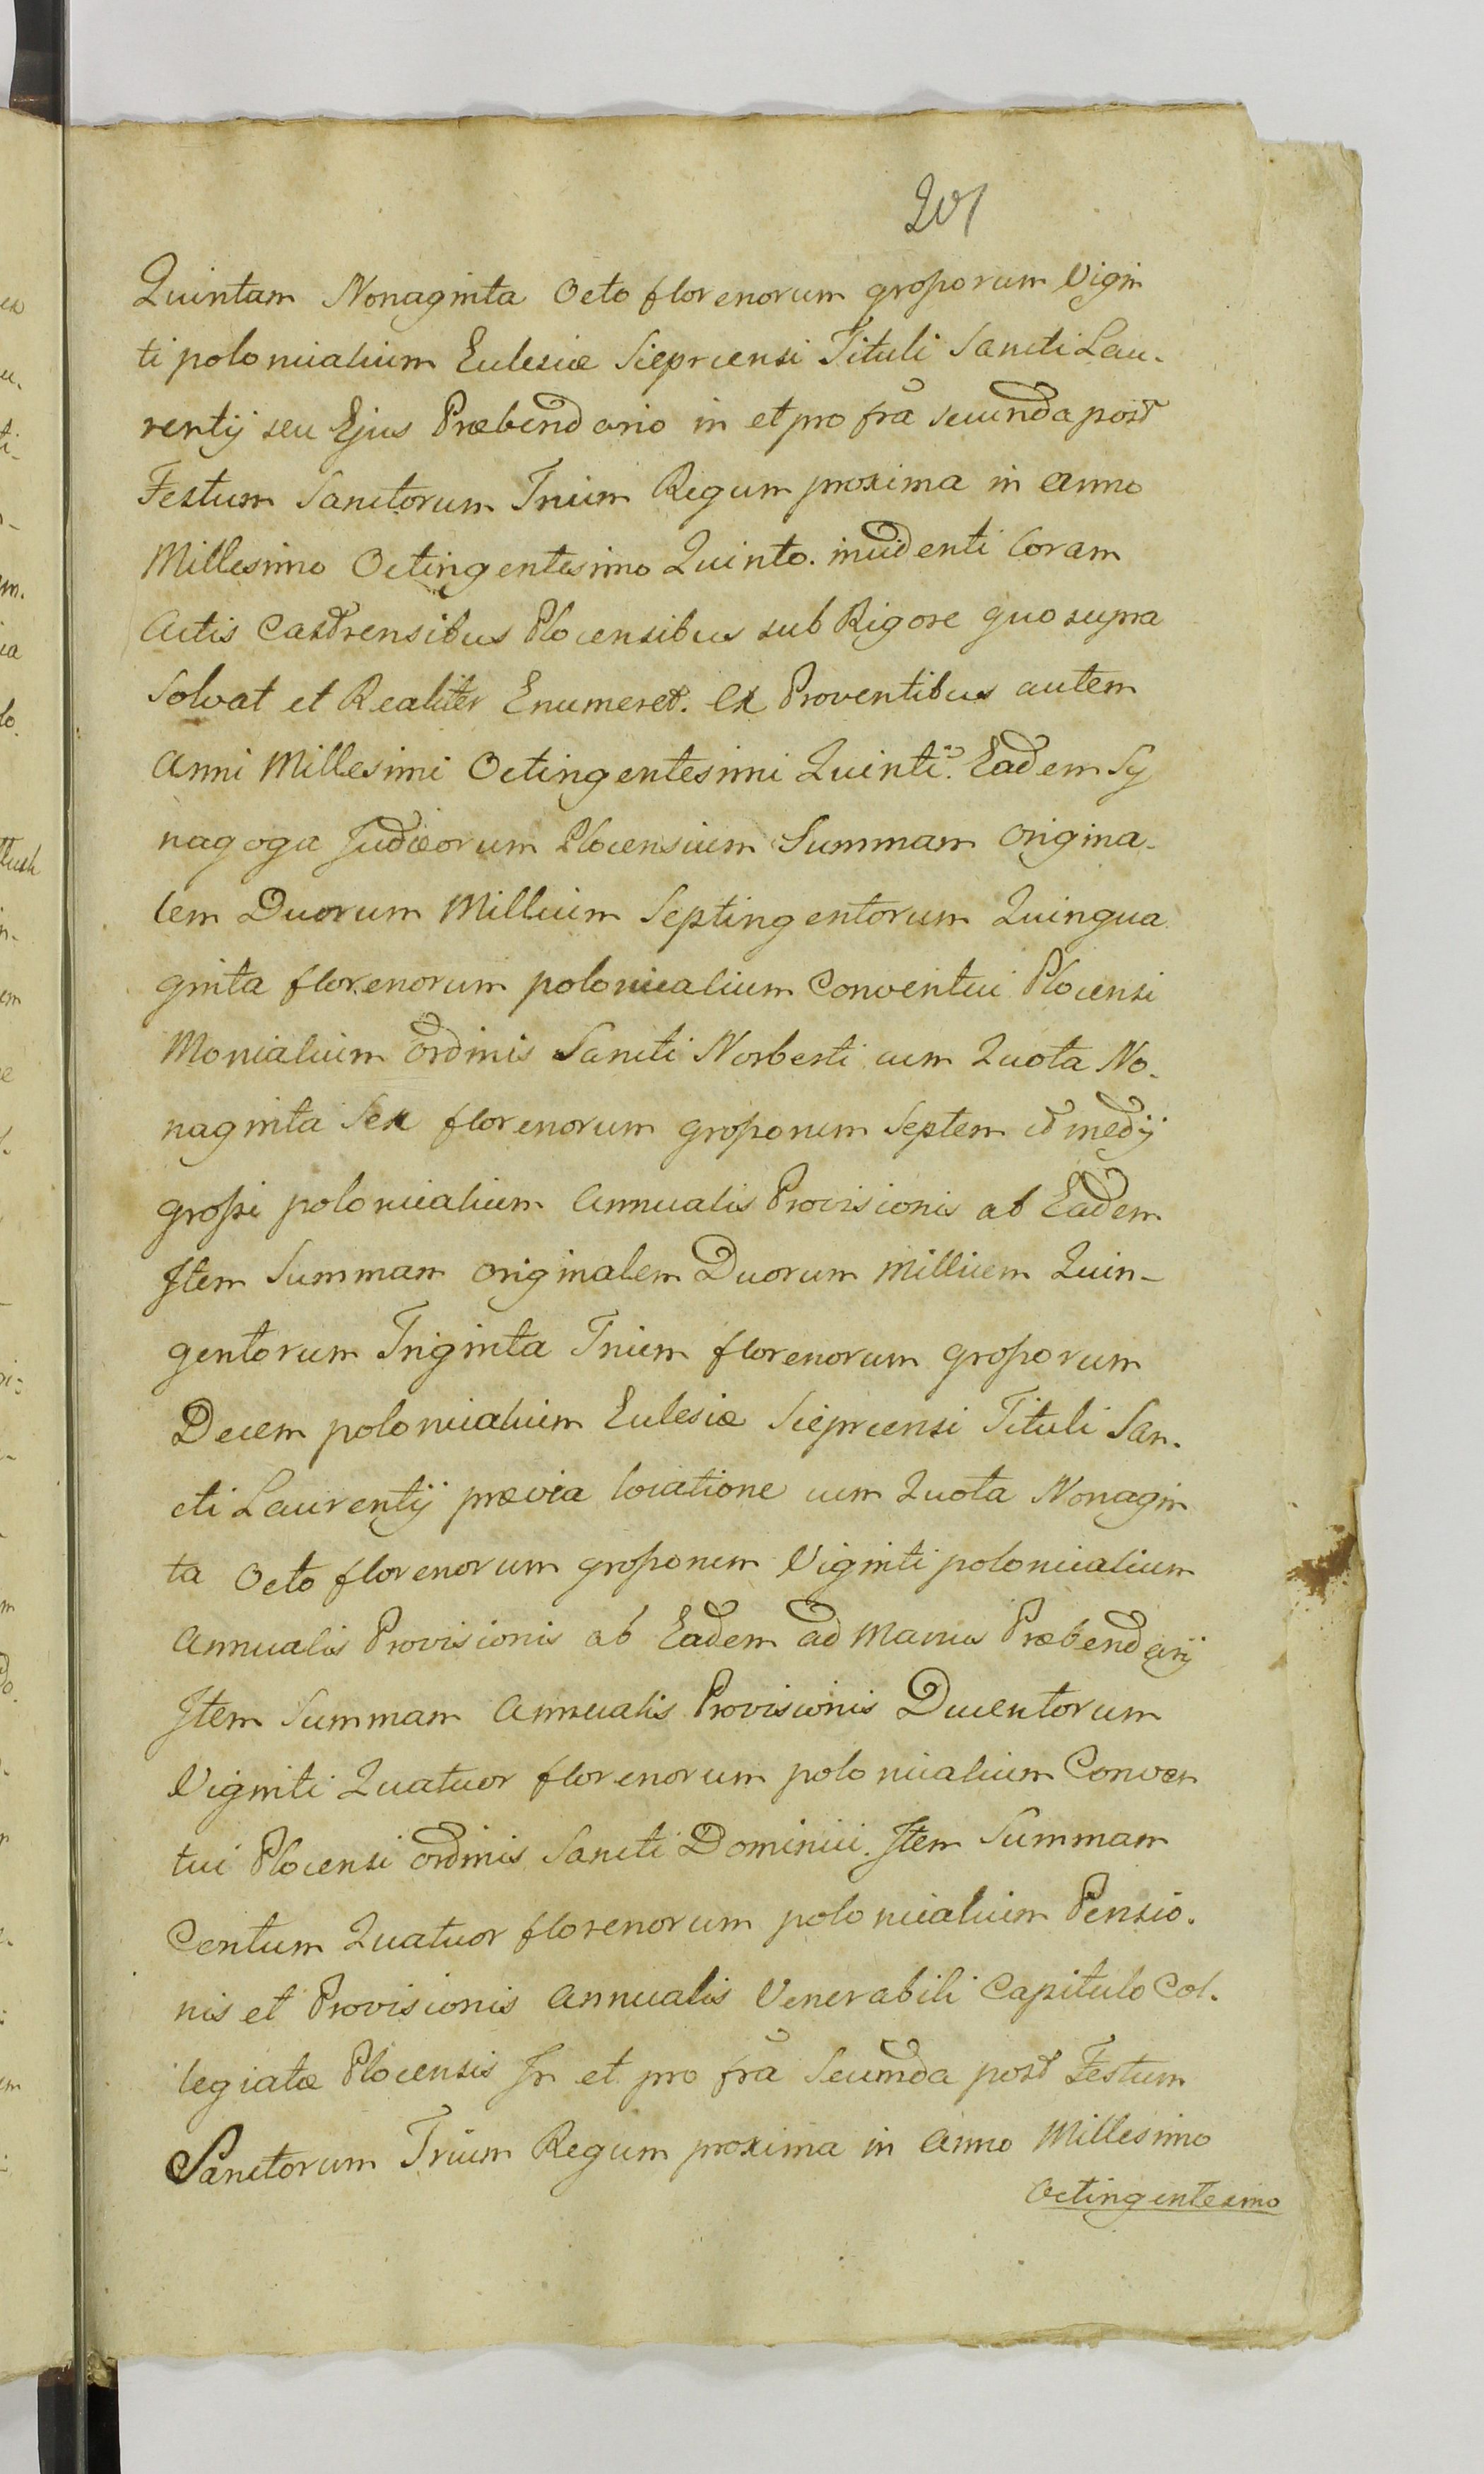 201
Quintam Nonaginta Octo florenorum grossorum Vigin
ti polonicalium Eclesiæ Sieprcensi Tituli Sancti Lau-
rentij seu Ejus Præbendario in et pro frã secunda post
Festum Sanctorum Trium Regum proxima in Anno
Millesimo Octingentesimo Quinto. incidenti Coram
Actis Castrensibus Plocensibus sub Rigore quo supra
Solvat et Realiter Enumeret. Ex Proventibus autem
Anni Millesimi Octingentesimi Quinti. Eadem Sy
nagoga Judæorum Plocensium Summam Origina-
lem Duorum Millium Septingentorum Quinqua
ginta florenorum polonicalium Conventui Plocensi
Monialium Ordinis Sancti Norberti cum Quota No-
naginta Sex florenorum grossorum Septem et medij
grossi polonicalium Annualis Provisionis ab Eadem
Item Summam Originalem Duorum Millium Quin-
gentorum Triginta Trium florenorum grossorum
Decem polonicalium Eclesiæ Sieprcensi Tituli San-
cti Laurentij prævia locatione cum Quota Nonagin
ta Octo florenorum grossorum Viginti polonicalium
Annualis Provisionis ab Eadem ad Manus Præbendarij
Item Summam Annualis Provisionis Ducentorum
Viginti Quatuor florenorum polonicalium Conven
tui Plocensi Ordinis Sancti Dominici. Item Summam
Centum Quatuor florenorum polonicalium Pensio-
nis et Provisionis Annualis Venerabili Capitulo Col-
legiatæ Plocensis In et pro frã Secunda post Festum
Sanctorum Trium Regum proxima in Anno Millesimo
Octingentesimo